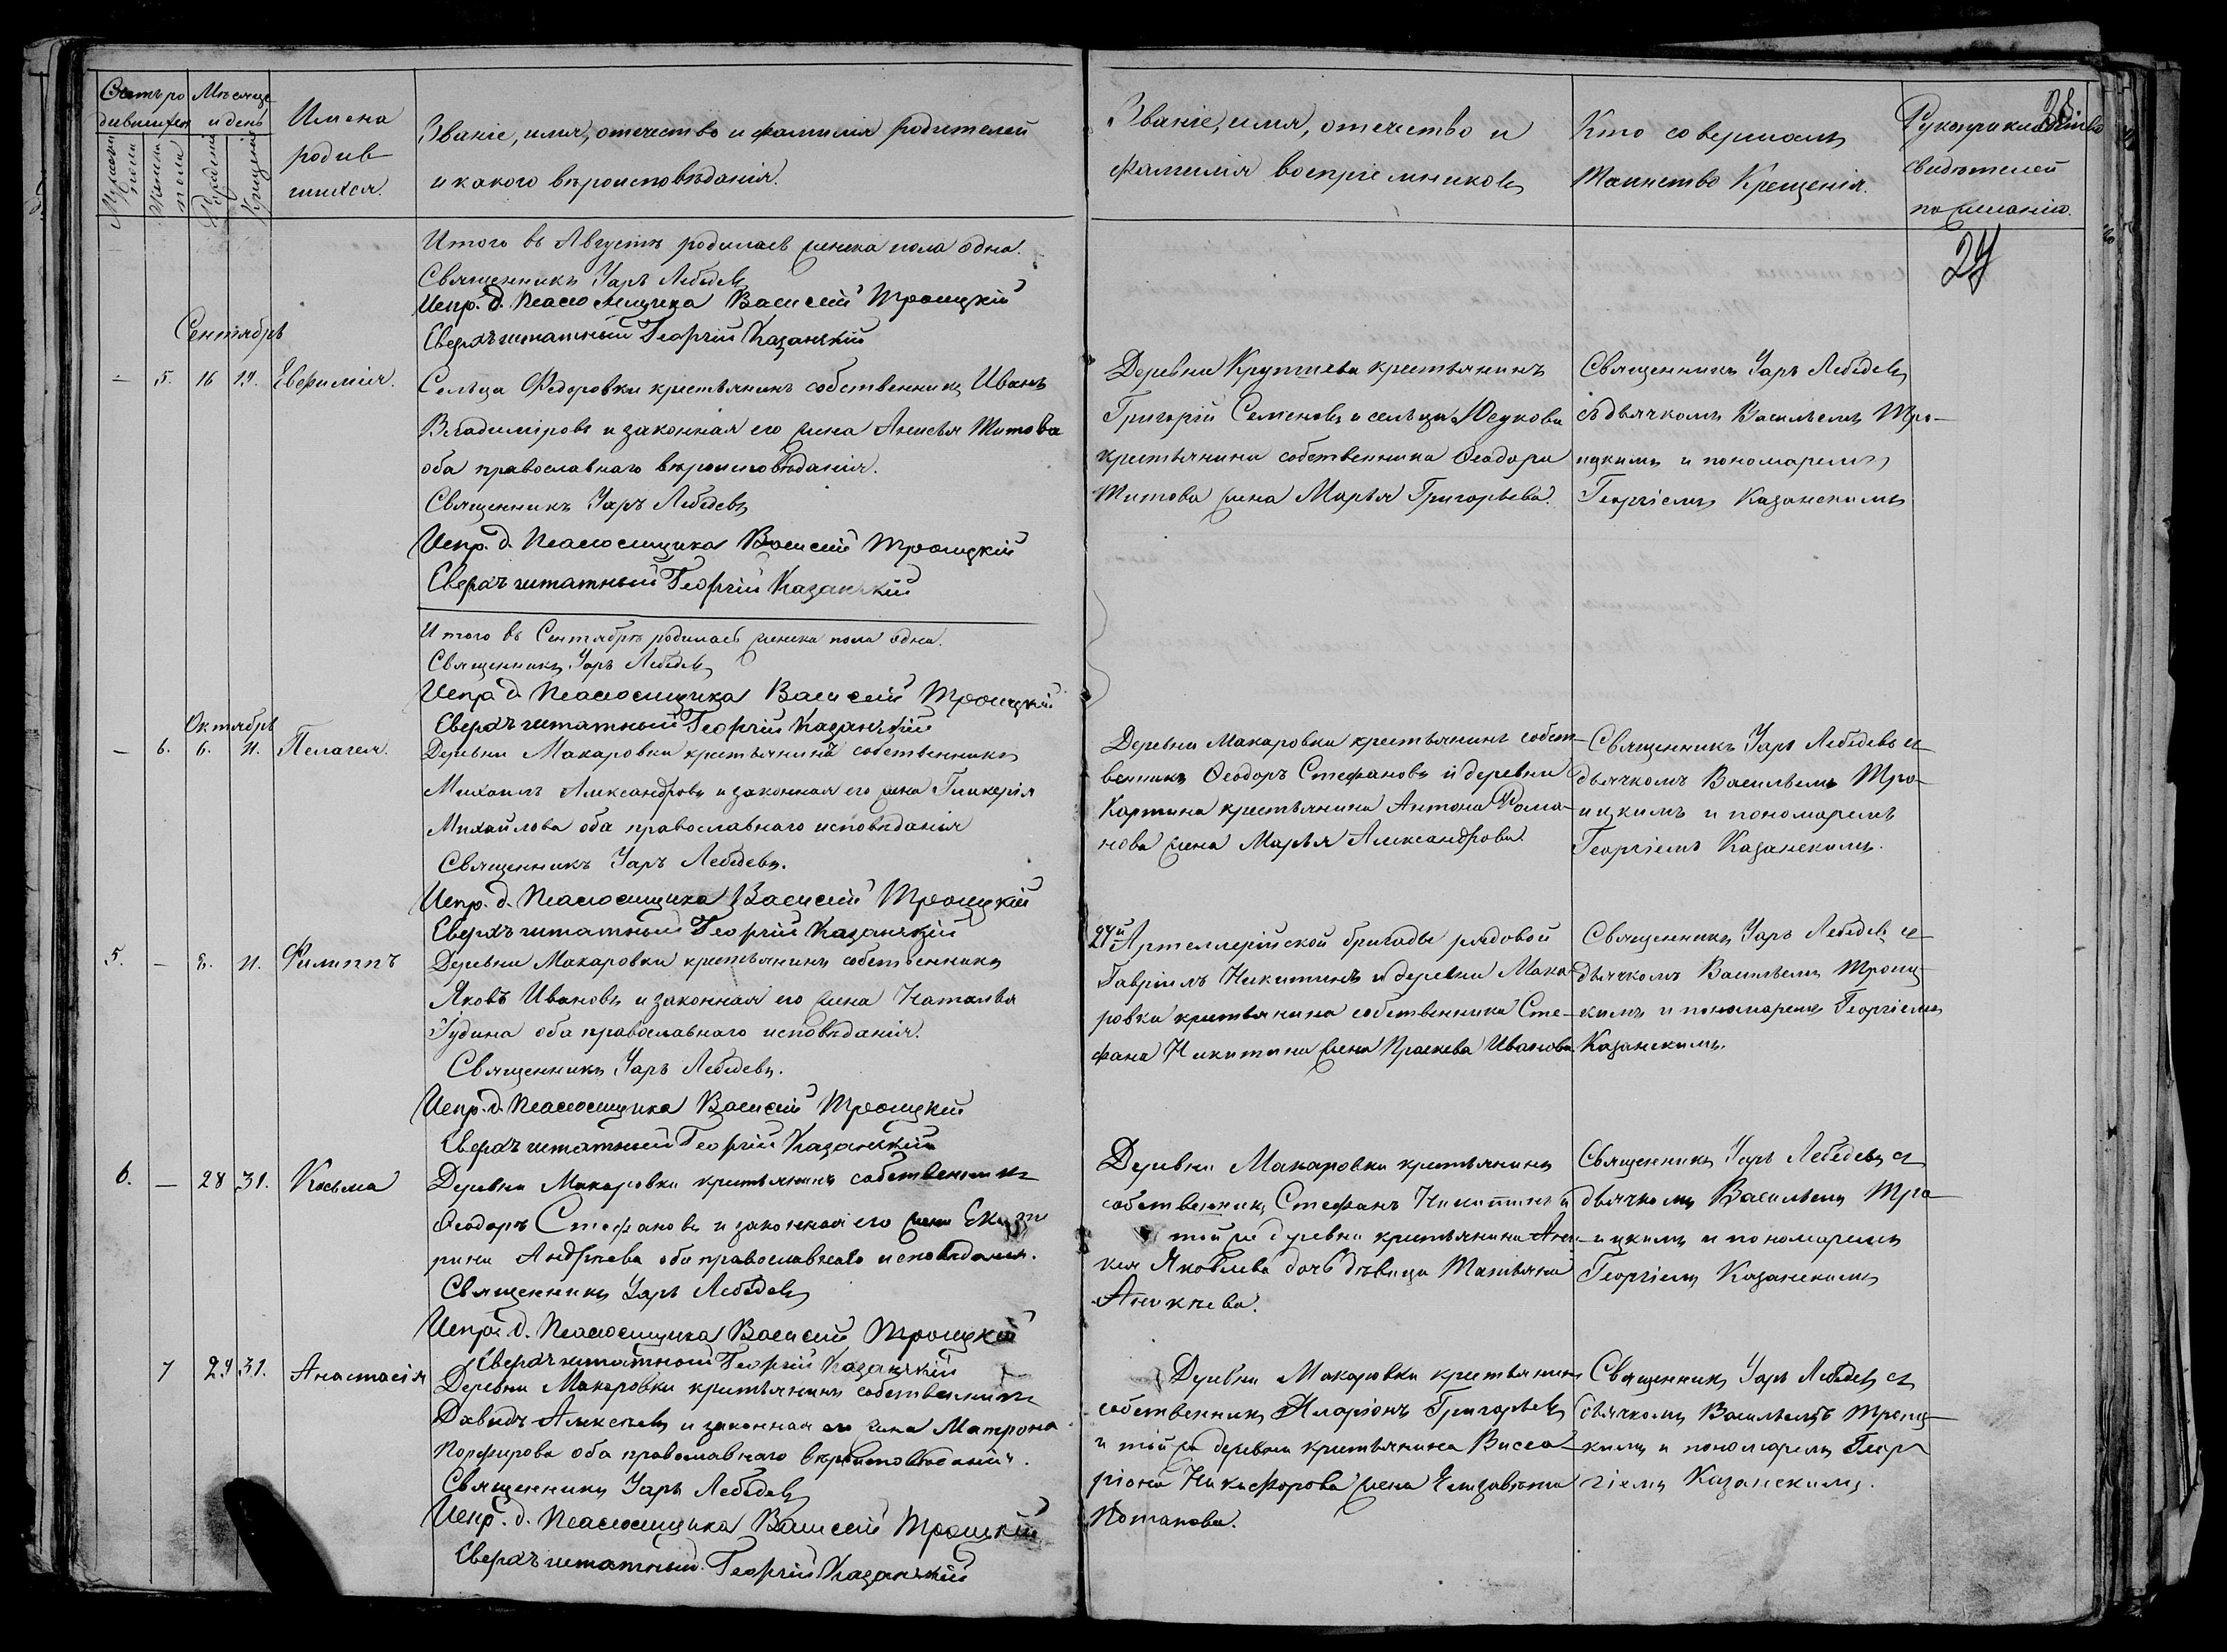 Счетъ ро
дившихся
Мѣсяцъ
и день
Мужеска
пола
Женска
пола
Рожденія
Крещенія
Имена
родив
шихся.
Званіе, имя, отечество и фамилія родителей
и какого вѣроисповѣданія.
Званіе, имя, отечество и
фамилія воспріемниковъ
Кто совершалъ
Таинство Крещенія.
Рукоприкладство
свидѣтелей
по желанію.
28.
24
Итого въ Августѣ родилась женска пола одна.
Священникъ Уаръ Лебедевъ
Испр. д. Псаломщика Василій Троицкій
Сверхъштатный Георгій Казанскій
Сентябрь
– 5. 16 19. Евфимія.
Сельца Ѳедоровки крестьянинъ собственникъ Иванъ
Владиміровъ и законная его жена Анисья Титова
оба православнаго вѣроисповѣданія.
Священникъ Уаръ Лебедевъ
Испр. д. Псаломщика Василій Троицкій
Сверхъштатный Георгій Казанскій
Деревни крестьянинъ
Григорій Семеновъ и сельца
крестьянина собственника Ѳеодора
Титова жена Марья Григорьева.
Священникъ Уаръ Лебедевъ
съ дьячкомъ Васильемъ Тро-
ицкимъ и пономаремъ
Георгіемъ Казанскимъ
Итого въ Сентябрѣ родилась женска пола одна.
Священникъ Уаръ Лебедевъ
Испр. д. Псаломщика Василій Троицкій
Сверхъштатный Георгій Казанскій
Октябрь
– 6. 6. 11. Пелагея.
Деревни Макаровки крестьянинъ собственникъ
Михаилъ Александровъ и законная его жена Гликерія
Михайлова оба православнаго исповѣданія
Священникъ Уаръ Лебедевъ.
Испр. д. Псаломщика Василій Троицкій
Сверхъштатный Георгій Казанскій
Деревни Макаровки крестьянинъ собст-
венникъ Ѳеодоръ Стефановъ и деревни
крестьянина Антона Рома-
нова жена Марья Александрова.
Священникъ Уаръ Лебедевъ съ
дьячкомъ Васильемъ Тро-
ицкимъ и пономаремъ
Георгіемъ Казанскимъ.
5. – 8. 11. Филиппъ
Деревни Макаровки крестьянинъ собственникъ
Яковъ Ивановъ и законная его жена Наталья
Іудина оба православнаго исповѣданія.
Священникъ Уаръ Лебедевъ.
Испр. д. Псаломщика Василій Троицкій
Сверхъштатный Георгій Казанскій
Артиллерійской бригады рядовой
Гавріилъ Никитинъ и деревни Мака-
ровки крестьянина собственника Сте-
фана Никитина жена Прасковья Иванова
Священникъ Уаръ Лебедевъ съ
дьячкомъ Васильемъ Троиц-
кимъ и пономаремъ Георгіемъ
Казанскимъ.
6. – 28 31. Косьма
Деревни Макаровки крестьянинъ собственникъ
Ѳеодоръ Стефановъ и законная его жена Екате
рина Андреева оба православнаго исповѣданія.
Священникъ Уаръ Лебедевъ
Испр. д. Псаломщика Василій Троицкій
Сверхъштатный Георгій Казанскій
Деревни Макаровки крестьянинъ
собственникъ Стефанъ Никитинъ и
той же деревни крестьянина Ани-
кея Яковлева дочь дѣвица Татьяна
Аникеева.
Священникъ Уаръ Лебедевъ съ
дьячкомъ Васильемъ Тро-
ицкимъ и пономаремъ
Георгіемъ Казанскимъ
7 29 31. Анастасія
Деревни Макаровки крестьянинъ собственникъ
Давидъ Алексѣевъ и законная его жена Матрона
Порфирова оба православнаго вѣроисповѣданія.
Священникъ Уаръ Лебедевъ
Испр. д. Псаломщика Василій Троицкій
Сверхъштатный Георгій Казанскій
Деревни Макаровки крестьянинъ
собственникъ Иларіонъ Григорьевъ
и той же деревни крестьянина Висса-
ріона Никифорова жена Елизавета
Потапова.
Священникъ Уаръ Лебедевъ съ
дьячкомъ Васильемъ Троиц-
кимъ и пономаремъ Геор
гіемъ Казанскимъ.